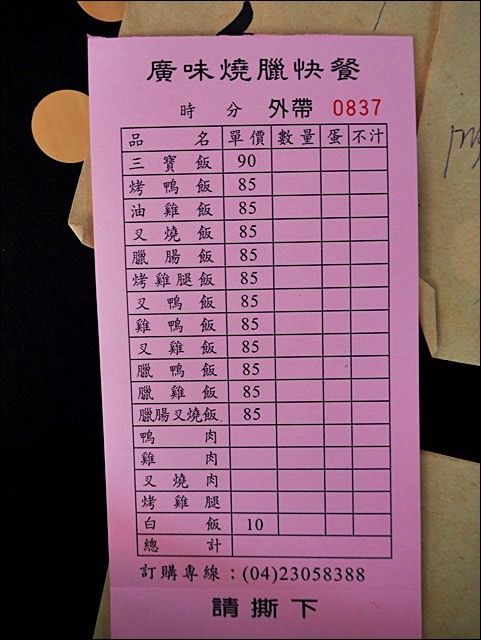 廣味燒臘快餐
時 分 外帶 0837
品名 單價 數量 蛋 不汁
三寶飯 90
烤鴨飯 85
油雞飯 85
叉燒飯 85
臘腸飯 85
烤雞腿飯 85
叉鴨飯 85
雞鴨飯 85
叉雞飯 85
臘鴨飯 85
臘雞飯 85
臘腸叉燒飯 85
鴨肉
雞肉
叉燒肉
烤雞腿
白飯 10
總計
訂購專線：(04)23058388
請撕下